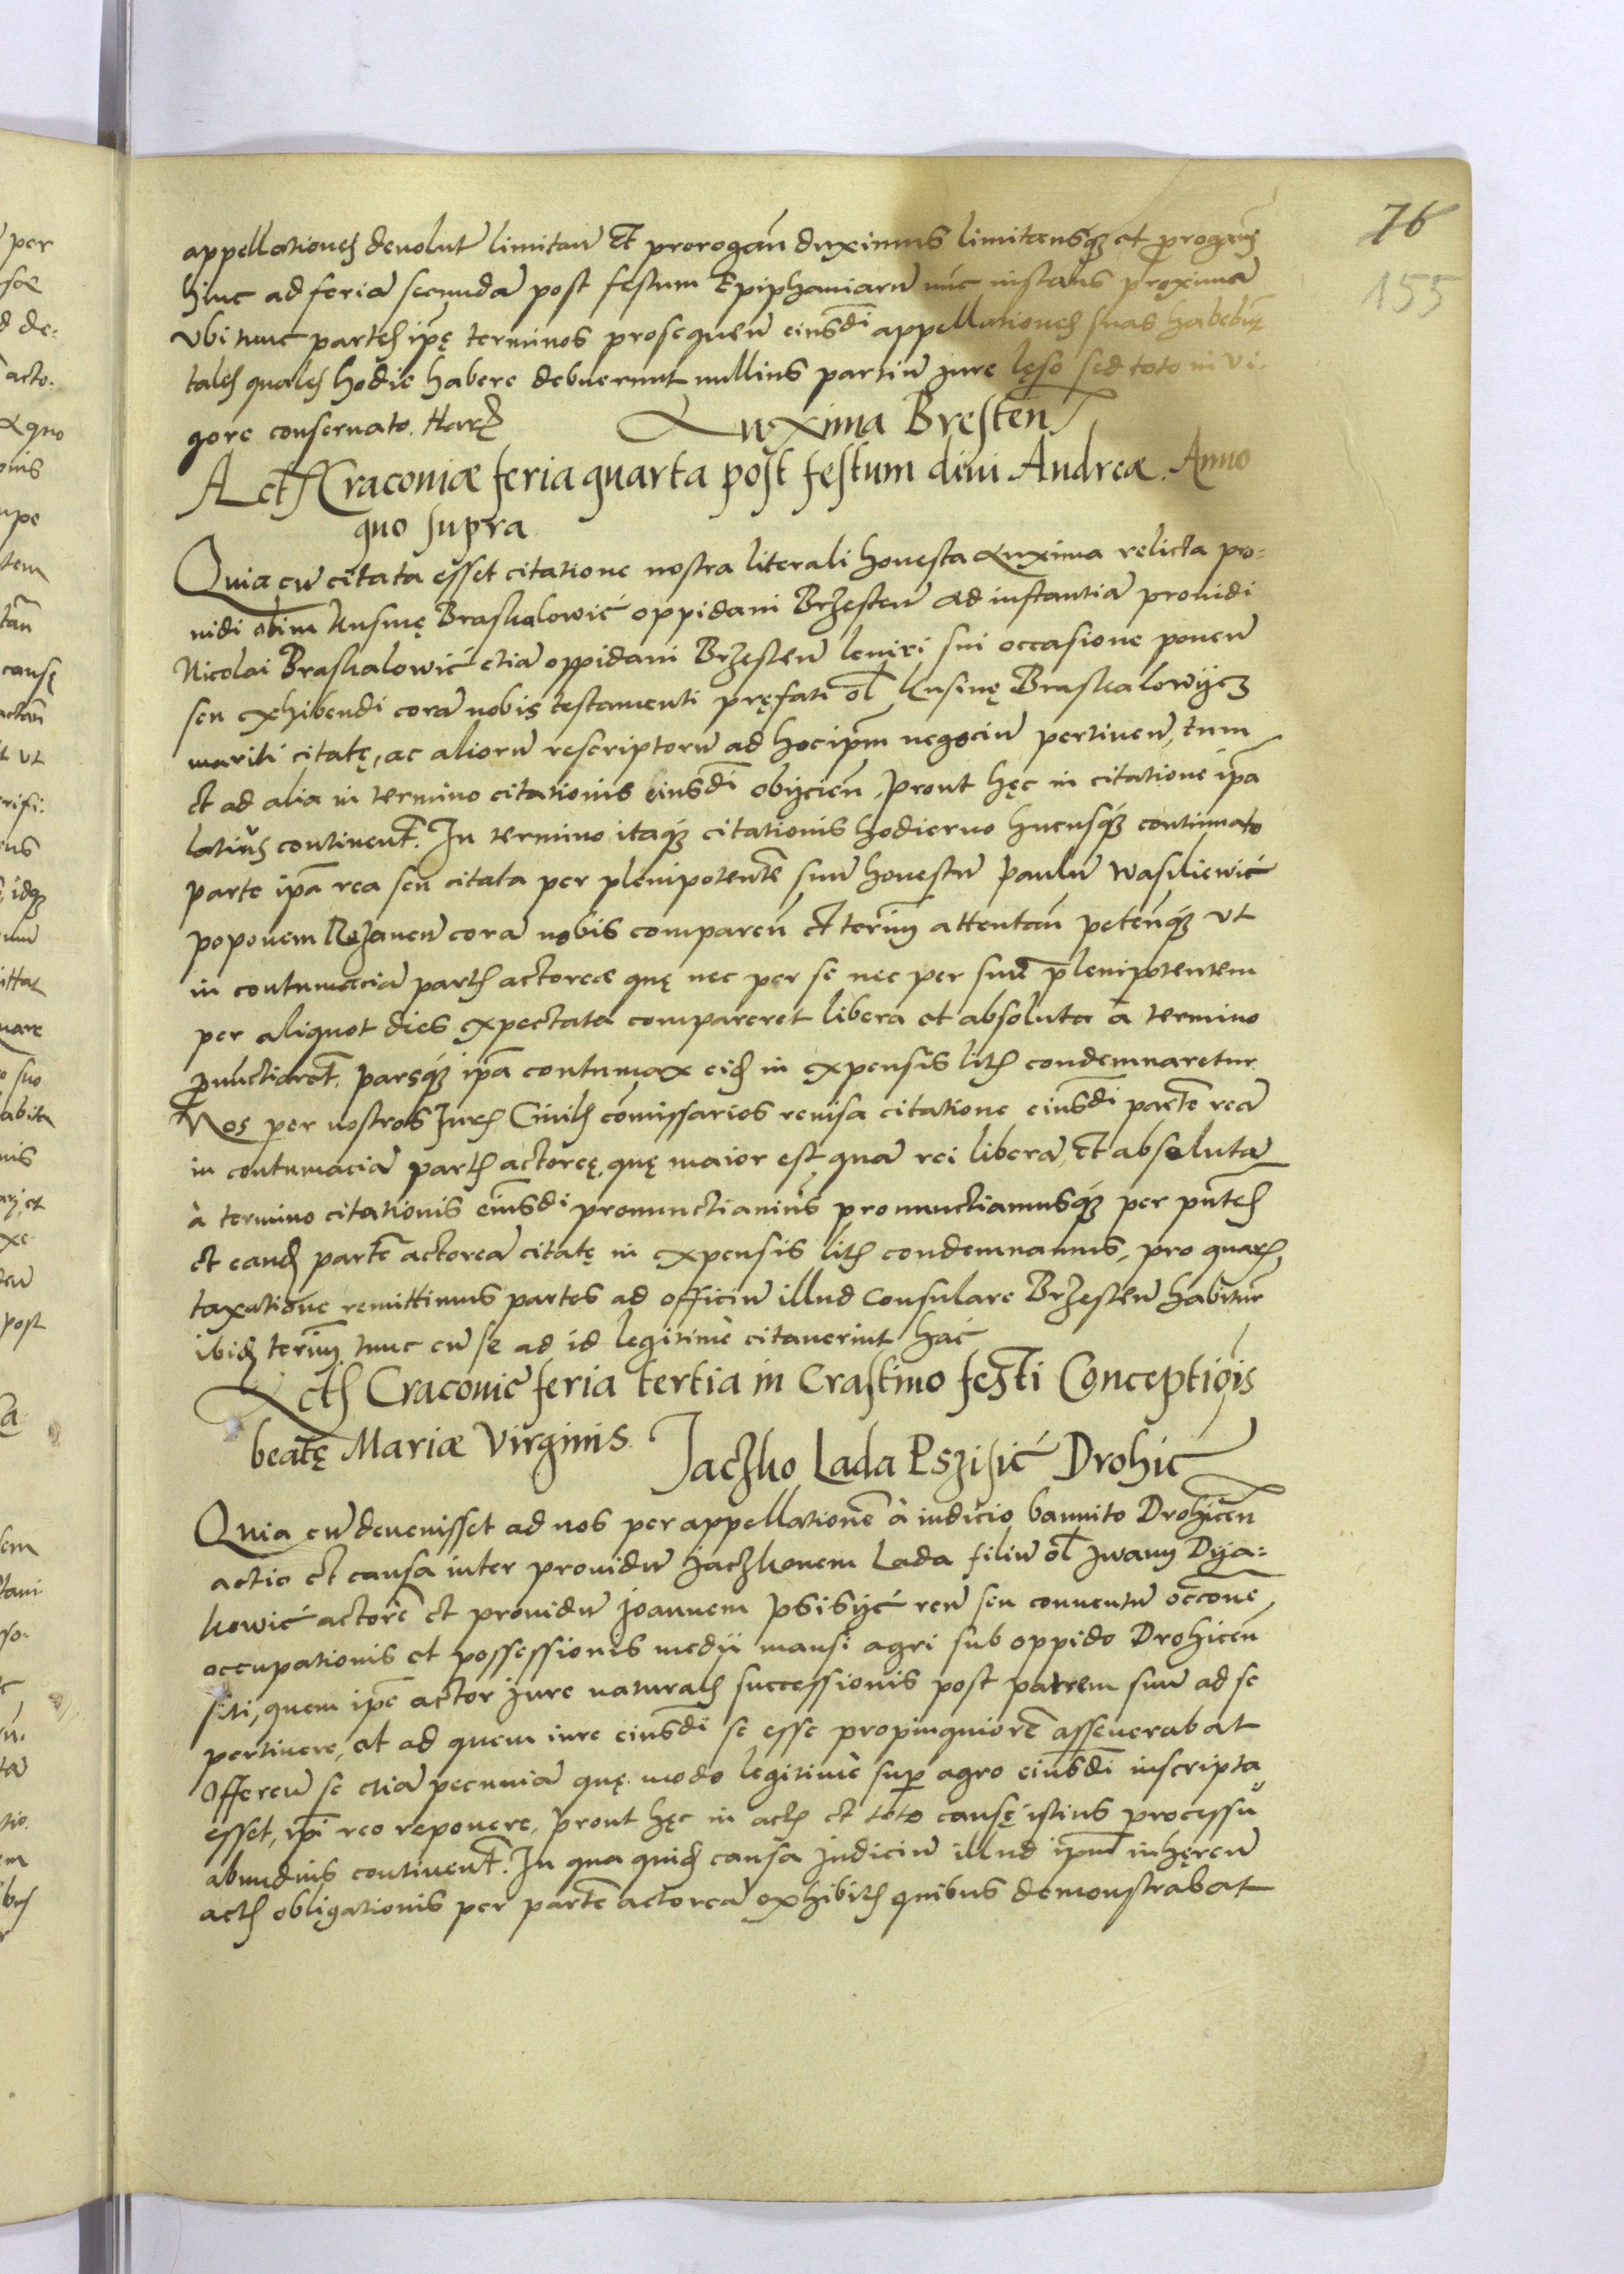 76
155
appellationes devolut limitan et prorogan duximus limitamusq et progamus
hinc ad feria secunda post festum Epiphaniaru nunc instans proxima
vbi tunc partes ipę terminos prosequen eiusdi appellationes suas habebut
tales quales hodie habere debuerunt nullius partiu jure lęso sed toto in vi-
gore conservato. Haru
Luxima Bresten
Acta Cracoviæ feria quarta post festum divi Andreæ. Anno
quo supra
Quia cu citata esset citatione nostra literali honesta Luxima relicta pro-
uidi olim Kusmę Braskalowić oppidani Brzesten ad instantia prouidi
Nicolai Braskalowić etia oppidani Brzesten leuiri sui occasione ponen
seu exhibendi cora nobis testamenti pręfati ol Kusmę Braskalowycz
mariti citatę, ac alioru rescriptoru ad hoc ipm negociu pertinen, tum
et ad alia in termino citationis eiusdi obijcien, Prout hęc in citatione ipa
latius continent. In termino itaq citationis hodierno hucusq continuato
parte ipa rea seu citata per plenipotente suu honestu Paulu Wasiliewić
poponem Rozanen cora nobis comparen et termu attentan petenq vt
in contumacia partis actoreæ quę nec per se nec per suu plenipotentem
per aliquot dies expectata compareret libera et absoluta a termino
pnuctiaret. Parsq ipa contumax eid in expensis litis condemnaretur
Nos per nostros Juris Civilis comissarios reuisa citatione eiusdi parte rea
in contumacia partis actoreę, quę maior est qua rei libera et absoluta
à termino citationis eiusdi pronunctiamus pronunctiamusq per pntes
et eand parte actorea citatę in expensis litis condemnamus, pro quaru
taxatione remittimus partes ad officiu illud Consulare Brzesten habitur
ibid termu tunc cu se ad id legitimè citauerint hac
Acta Cracovie feria tertia in Crastino festi Conceptiois
beatę Mariæ Virginis.
Jaczko Lada Pszisić Drohic
Quia cu deuenisset ad nos per appellatione à iudicio bannito Drohicen
actio et causa inter prouidu Jaczkonem Lada filiu ol Jwany Dya-
kowić actore et prouidu Joannem Psisyć reu seu conuentu occone
occupationis et possessionis medii mansi agri sub oppido Drohicen
siti, quem ipe actor jure naturalis successionis post patrem suu ad se
pertinere, et ad quem iure eiusdi se esse propinquiore asseuerabat
Offeren se etia pecunia quę modo legitimè sup agro eiusdi inscripta
esset, ipi reo reponere, Prout hęc in actis et toto causę istius processu
abundius continent. In qua quid causa Judiciu illud ipm inhęren
actis obligationis per parte actorea exhibitis quibus demonstrabat